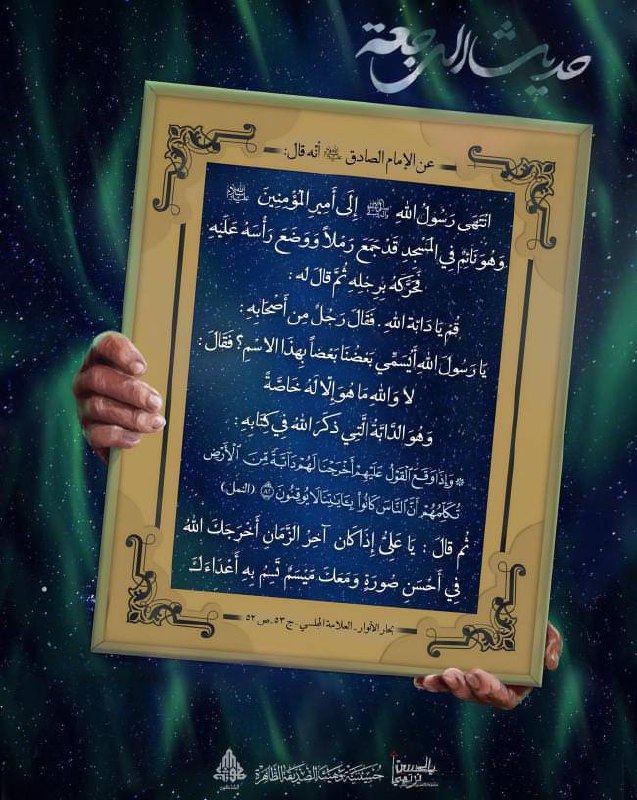 حديث الرجعة
عن الإمام الصادق عليه السلام أنه قال:
انْتَهَى رَسُولُ اللهِ ﷺ إِلَى أَمِيرِ الْمُؤْمِنِينَ عليه السلام
وَهُوَ نَائِمٌ فِي الْمَسْجِدِ قَدْ جَمَعَ رَمْلاً وَوَضَعَ رَأْسَهُ عَلَيْهِ
فَحَرَّكَهُ بِرِجْلِهِ ثُمَّ قَالَ لَهُ :
قُمْ يَا دَابَّةَ اللهِ . فَقَالَ رَجُلٌ مِن أَصْحَابِهِ :
يَا رَسُولَ اللهِ أَيُسَمِّي بَعْضُنَا بَعْضاً بِهَذَا الاسْمِ؟ فَقَالَ :
لا وَالله مَا هُوَ إِلّا لَهُ خَاصَّةً
وَهُوَ الدَّابَّةُ الَّتِي ذَكَرَ اللهُ فِي كِتَابِهِ :
وَإِذَا وَقَعَ ٱلْقَوْلُ عَلَيْهِمْ أَخْرَجْنَا لَهُمْ دَآبَّةً مِّنَ ٱلْأَرْضِ
تُكَلِّمُهُمْ أَنَّ ٱلنَّاسَ كَانُوا۟ بِـَٔايَـٰتِنَا لَا يُوقِنُونَ ﴿٨٢﴾ (النمل)
ثُم قالَ : يَا عَلِيُّ إِذَا كَان آخِرُ الزَّمَانِ أَخْرَجَكَ اللهُ
فِي أَحْسَنِ صُورَةٍ وَمَعَكَ مَيْسَمٌ تَسِمُ بِهِ أَعْدَاءَكَ
بحار الأنوار - العلامة المجلسي - ج ٥٣ - ص ٥٢
حُسَينيّة وَهَيئة الصِّدّيقَة الطَّاهِرَة